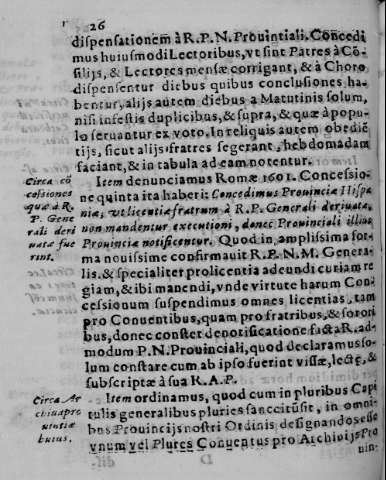 26
dispensationem à R. P. N. Prouintiali. Concedi
mus huiusmodi Lectoribus, vt sint Patres à Cõ
silijs, & Lectores mensæ corrigant, & à Choro
dispensentur diebus quibus conclusiones ha-
bentur, alijs autem diebus à Matutinis solum,
nisi in festis duplicibus, & supra, & quæ à popu-
lo seruantur ex voto. In reliquis autem obediẽ
tijs, sicut alijs fratres se gerant, hebdomadam
faciant, & in tabula ad eam notentur.
Circa cõ
cessiones
quæ à R.
P. Gene
rali deri
uatæ fue
rint.
Item denunciamus Romæ 1601. Concessio-
ne quinta ita haberi: Concedimus Prouinciæ Hispa
niæ, vt licentia fratrum à R. P. Generali deriuata,
non mandentur executioni, donec Prouinciali illius
Prouinciæ notificentur. Quod in amplissima for-
ma nouissime confirmauit R. P. N. M. Genera-
lis. & specialiter pro licentia adeundi curiam re
giam, & ibi manendi, vnde virtute harum Con
cessionum suspendimus omnes licentias, tam
pro Conuentibus, quam pro fratribus, & sorori
bus, donec constet de notificatione facta R. ad-
modum P. N. Prouinciali, quod declaramus so-
lum constare cum ab ipso fuerint vissæ, lectę, &
subscriptæ à sua R. A. P.
Circa Ar
chiua pro
uintiæ
huius.
Item ordinamus, quod cum in pluribus Capi
tulis generalibus pluries sanccitũ sit, in omni-
bus Prouincijs nostri Ordinis designandos esse
vnum vel Plures Conuentus pro Archiuijs Pro
uin-